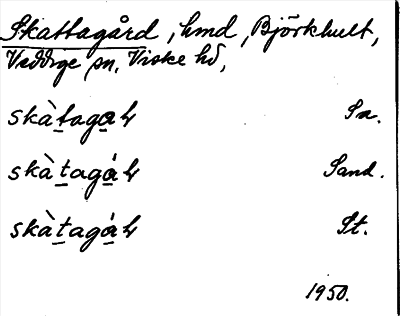 Skattagård, hmd, Björkhult,
Veddige sn. Viske hd,
skàt̲aga̲ɦ Sn.
skàt̲agá̲ɦ Sand.
skàt̲agá̲ɦ St.
1950.